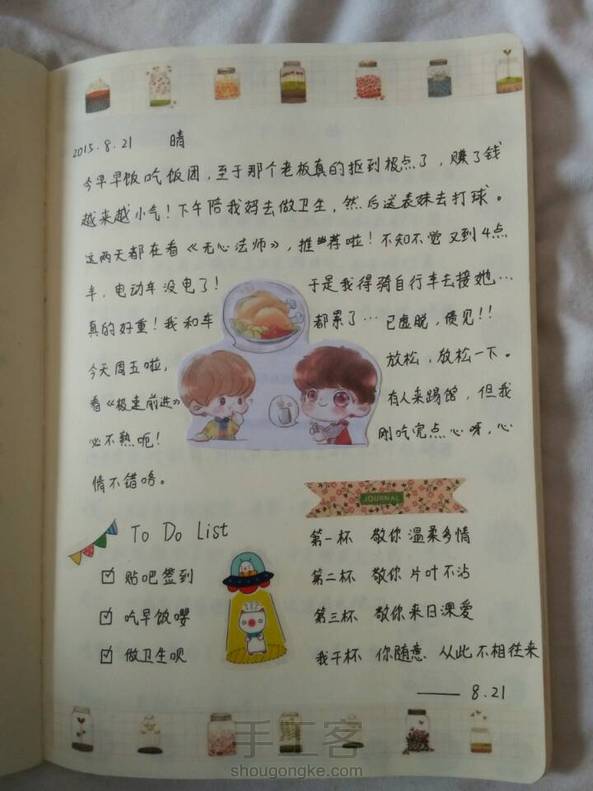 2015.8.21 晴
今早早饭吃饭团，至于那个老板真的抠到极点了，赚了钱
越来越小气！下午陪我妈去做卫生，然后送表妹去打球。
这两天都在看《无心法师》，推荐啦！不知不觉又到4点
半，电动车没电了！ 于是我得骑自行车去接她…
真的好重！我和车 都累了… 已虚脱，债见！！
今天周五啦， 放松，放松一下。
看《极速前进》 有人来踢馆，但我
必不熬呃！ 刚吃完点心呀，心
情不错哈。
JOURNAL
To Do List
贴吧签到
吃早饭嘤
做卫生呗
第一杯 敬你温柔多情
第二杯 敬你片叶不沾
第三杯 敬你来日深爱
我干杯 你随意 从此不相往来
—— 8.21
手工客
shougongke.com